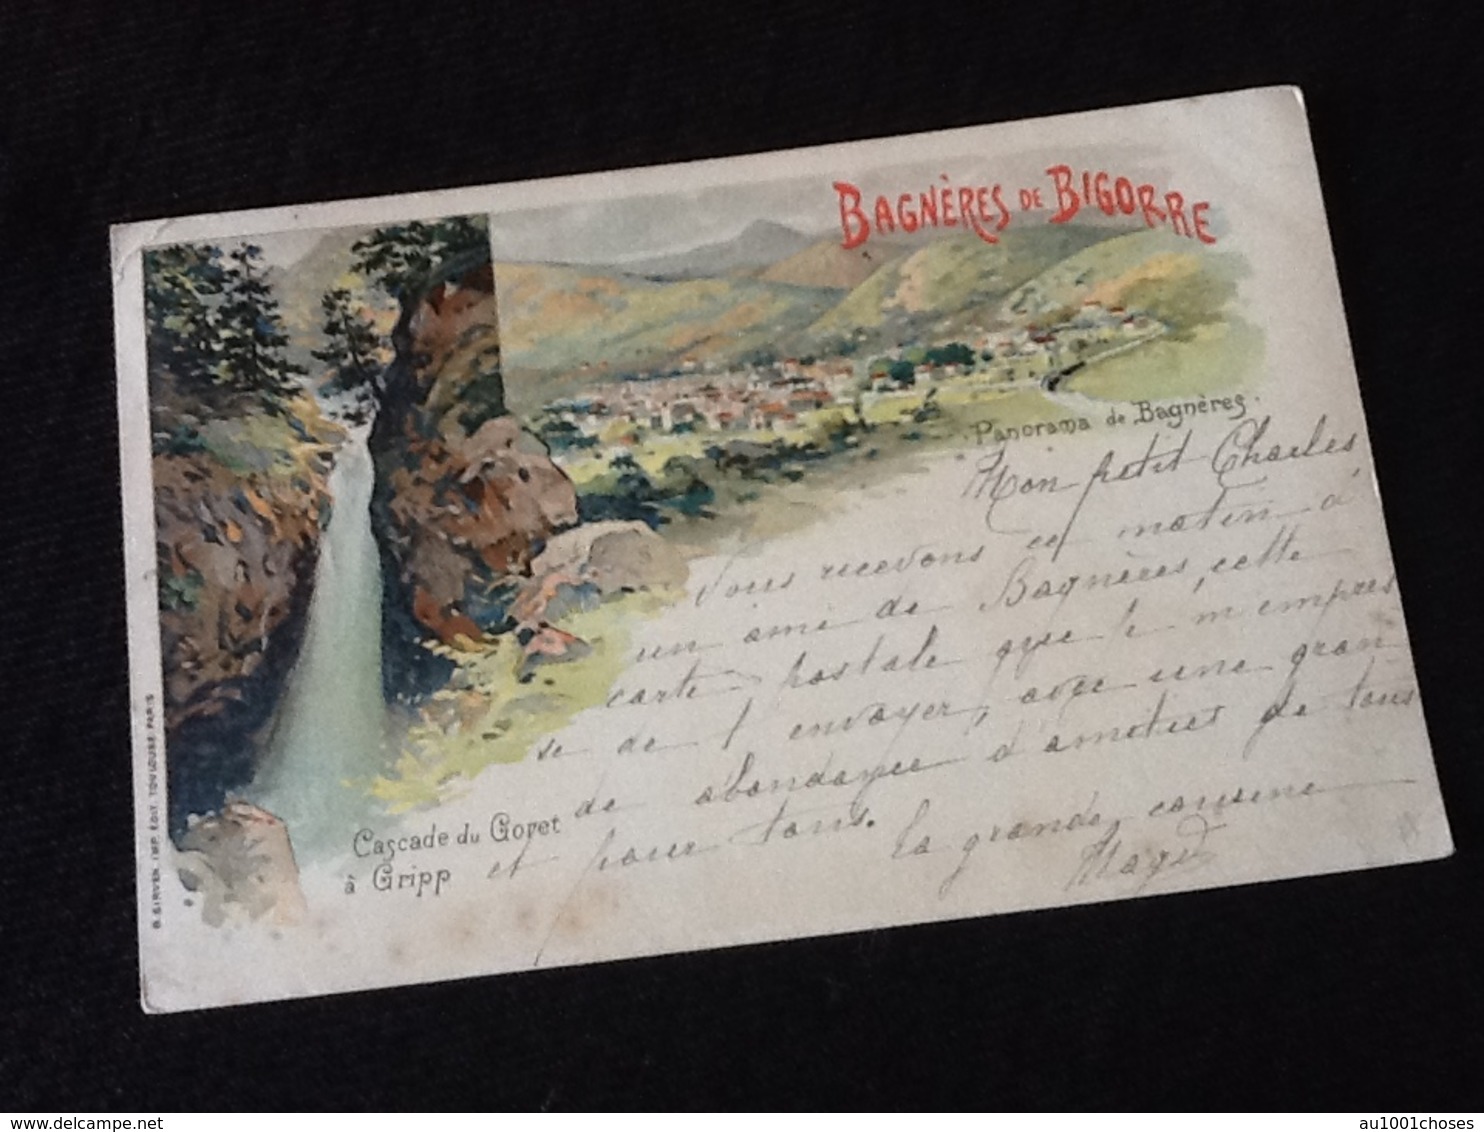 BAGNÈRES DE BIGORRE
Panorama de Bagnères.
Mon petit Charles
Nous recevons ce matin d'
un ami de Bagnères, cette
carte postale que je m'empres
se de t'envoyer, avec une gran
de abondance d'amitiés de tous
et pour tous.
La grande cousine
Cascade du Goret
à Gripp
B. SIRVEN. IMP. ÉDIT. TOULOUSE. PARIS
delcampe.net
au1001choses